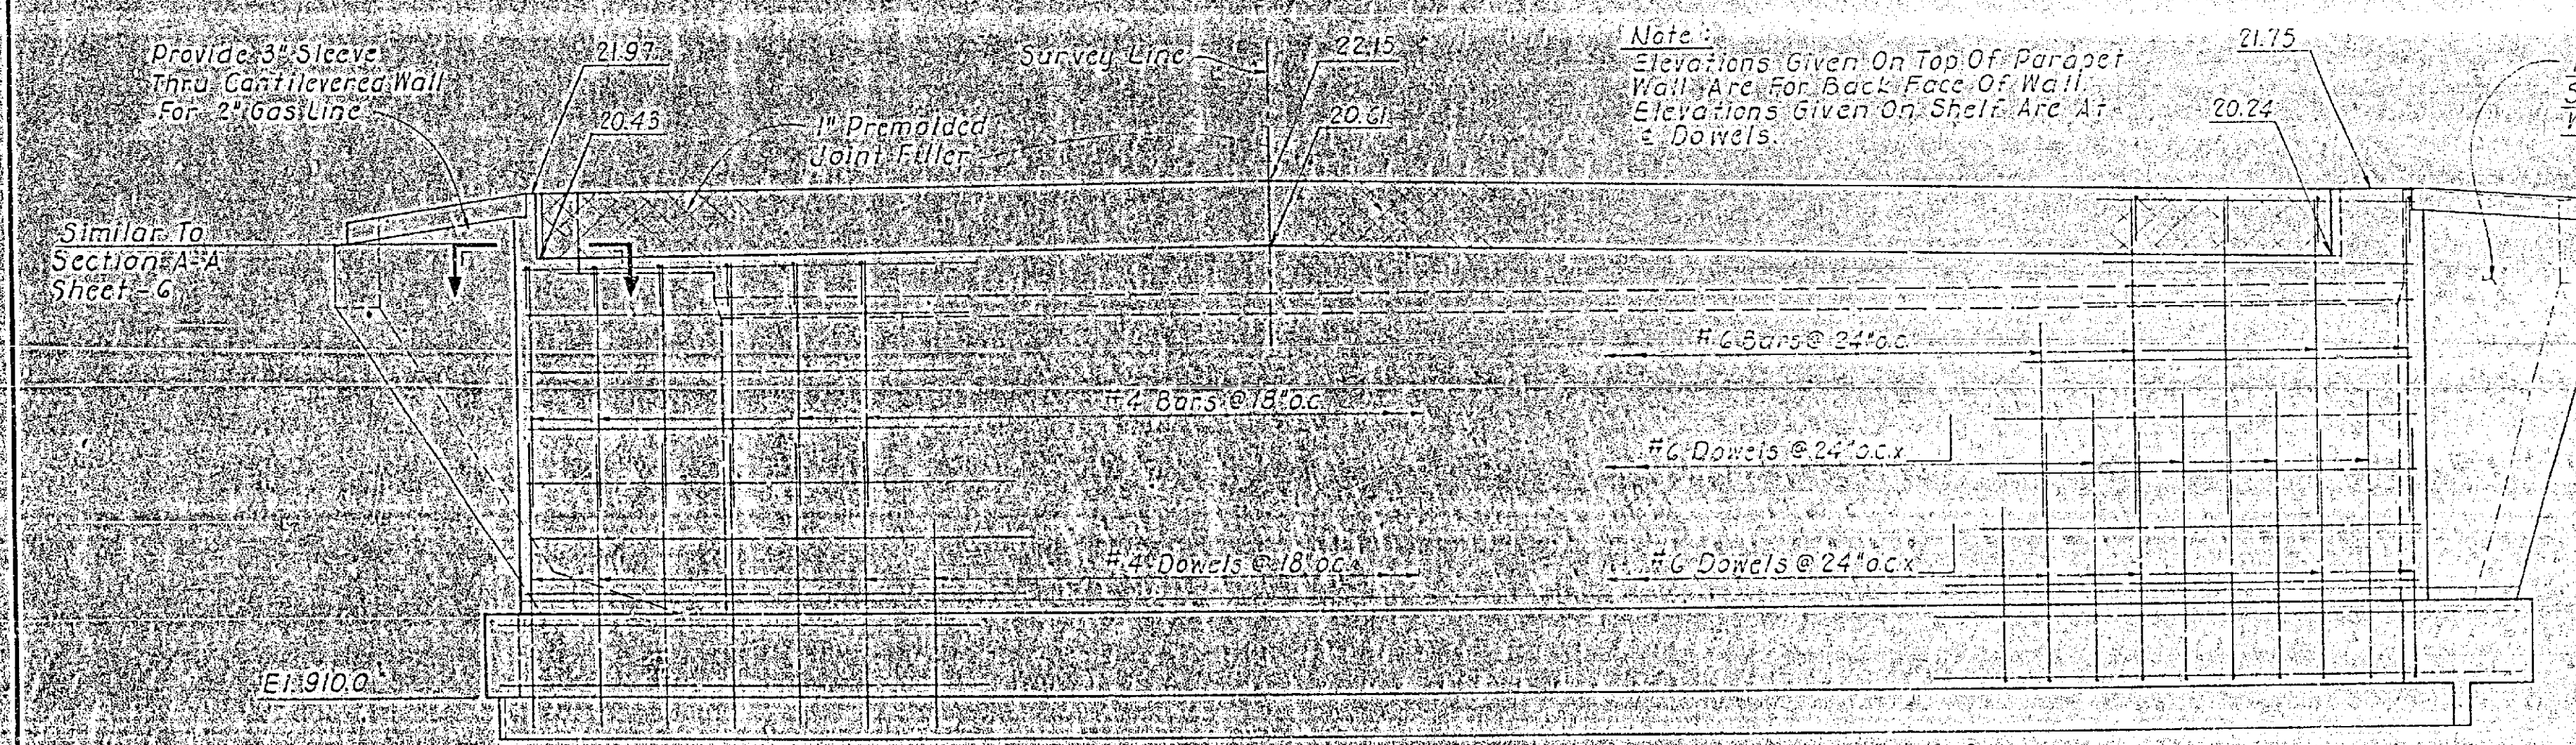 Provide 3" Sleeve
Thru Cantilevered Wall
For 2" Gas Line
21.97
20.43
Survey Line
22.15
20.61
1" Premolded
Joint Filler
Note:
Elevations Given On Top Of Parapet
Wall Are For Back Face Of Wall.
Elevations Given On Shelf Are At
℄ Dowels.
21.75
20.24
Similar To
Section A-A
Sheet-6
#6 Bars @ 24" o.c.
#4 Bars @ 18" o.c.
#6 Dowels @ 24" o.c.x
#4 Dowels @ 18" o.c.
#6 Dowels @ 24" o.c.x
El. 910.0